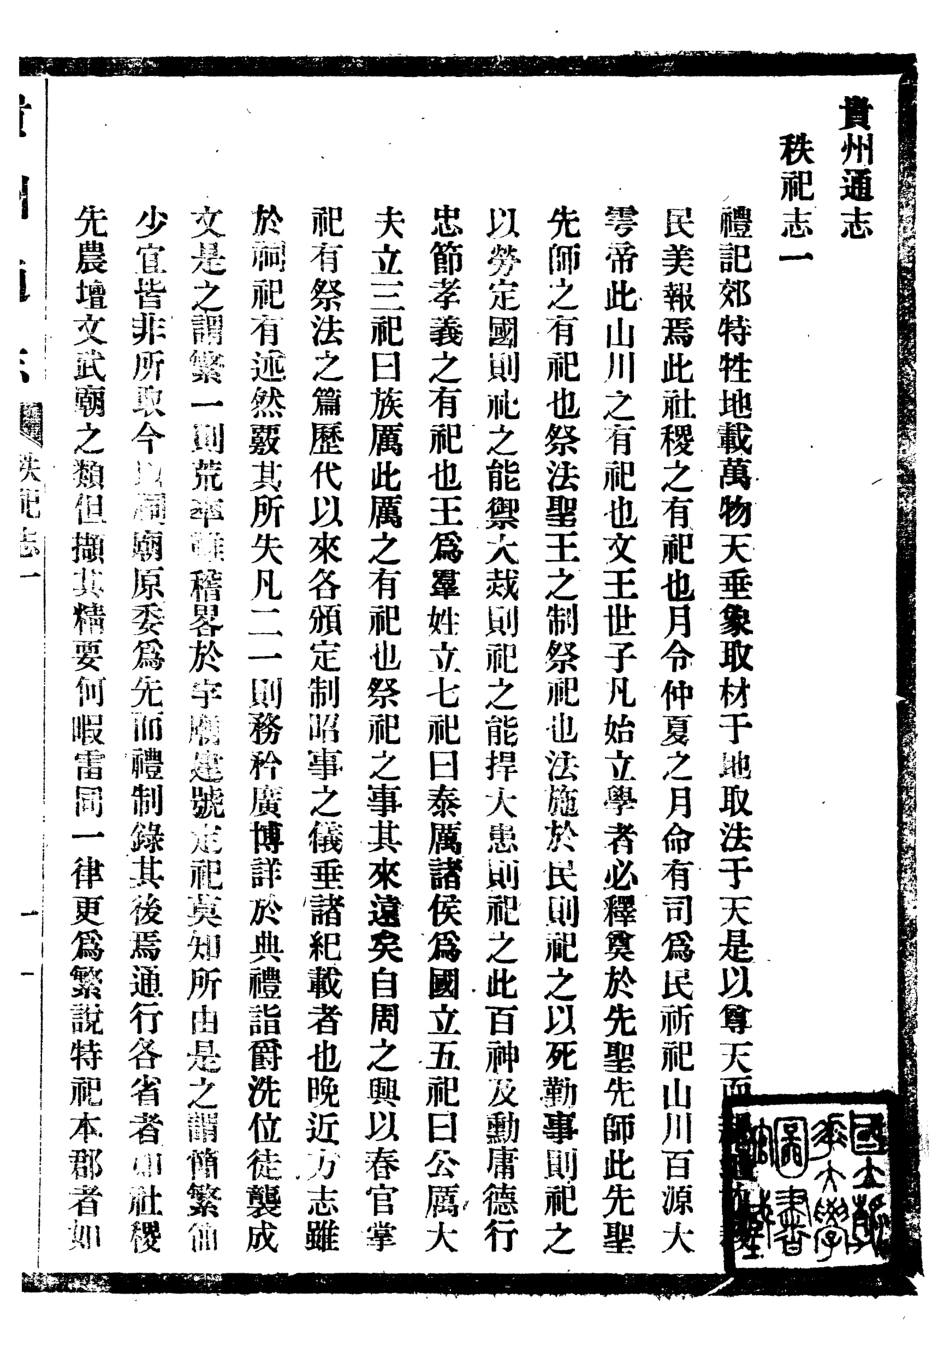 貴州通志
秩祀志一
禮記郊特牲地載萬物天垂象取材于地取法于天是以尊天而
民美報焉此社稷之有祀也月令仲夏之月命有司爲民祈祀山川百源大
雩帝此山川之有祀也文王世子凡始立學者必釋奠於先聖先師此先聖
先師之有祀也祭法聖王之制祭祀也法施於民則祀之以死勤事則祀之
以勞定國則祀之能禦大烖則祀之能捍大患則祀之此百神及勳庸德行
忠節孝義之有祀也王爲羣姓立七祀曰泰厲諸侯爲國立五祀曰公厲大
夫立三祀曰族厲此厲之有祀也祭祀之事其來遠矣自周之興以春官掌
祀有祭法之篇歷代以來各頒定制昭事之儀垂諸紀載者也晚近方志雖
於祠祀有述然覈其所失凡二一則務矜廣博詳於典禮詣爵洗位徒襲成
文是之謂繁一則荒率難稽畧於宇廟建號定祀莫知所由是之謂簡繁簡
少宜皆非所取今以祠廟原委爲先而禮制錄其後焉通行各省者如社稷
先農壇文武廟之類但擷其精要何暇雷同一律更爲繁說特祀本郡者如
秩祀志一
一
國立
大學
圖書